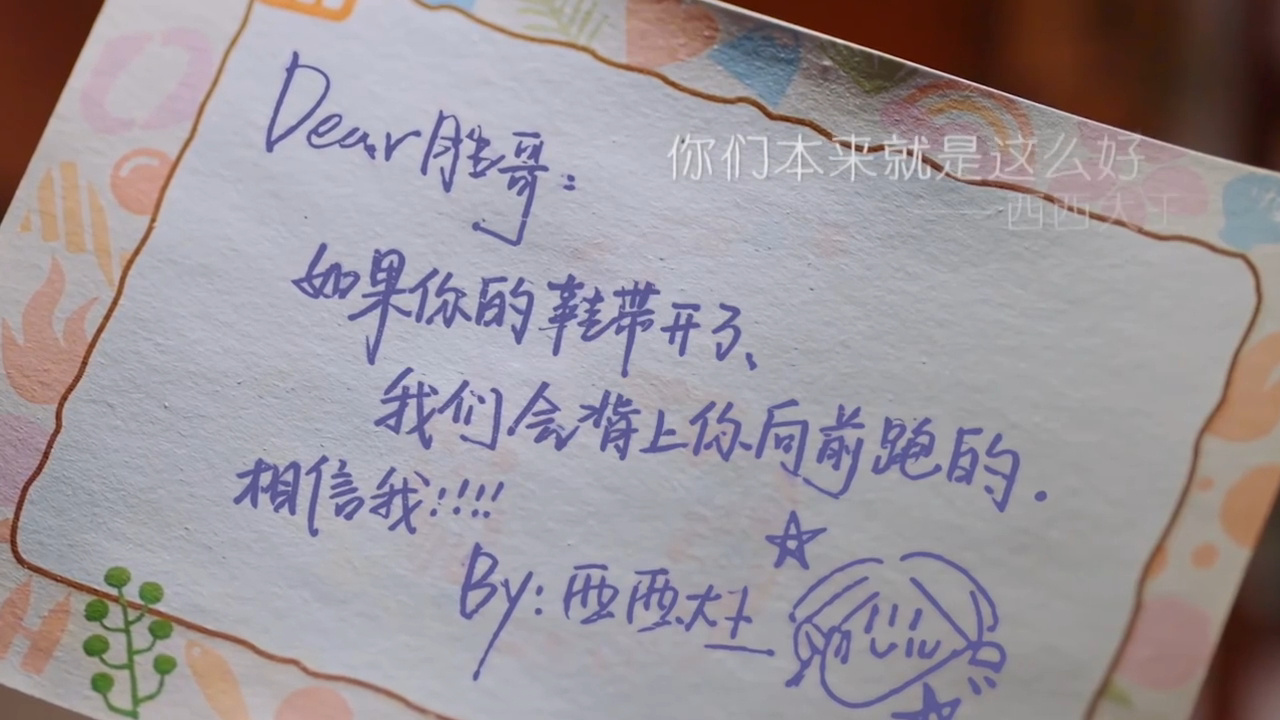 Dear胜哥:
你们本来就是这么好
——西西大王
如果你的鞋带开了、
我们会背上你向前跑的.
相信我!!!!
By:西西大王